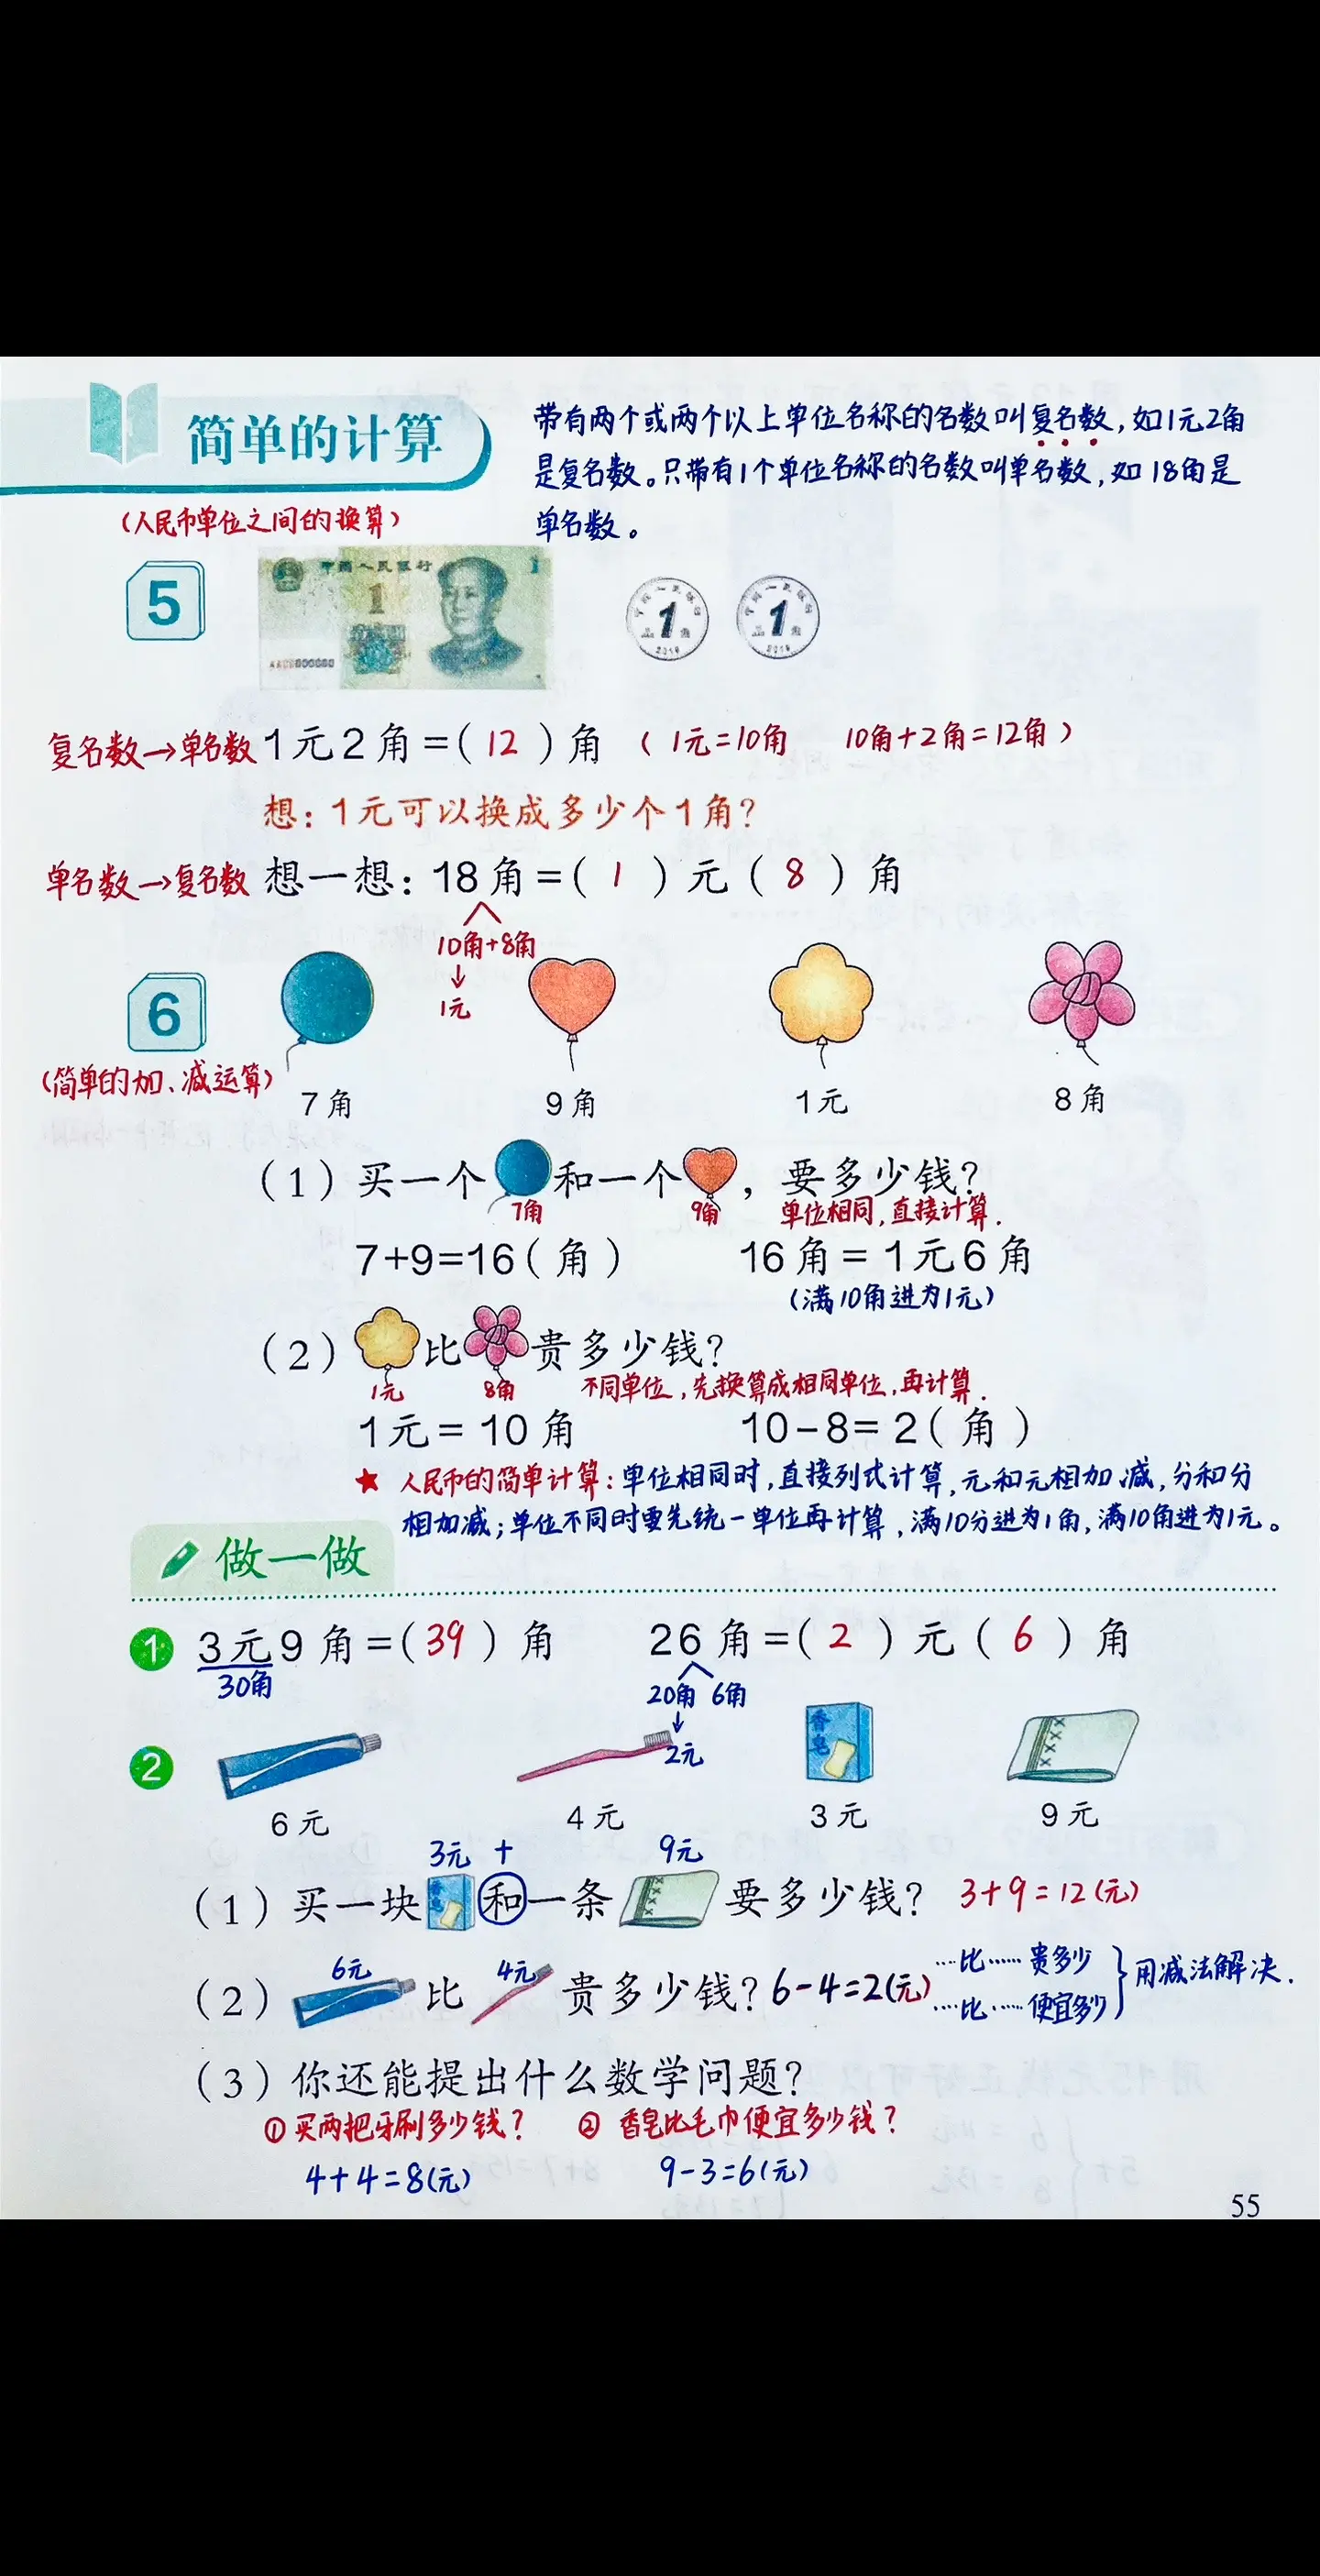 简单的计算
带有两个或两个以上单位名称的名数叫复名数,如1元2角
是复名数。只带有1个单位名称的名数叫单名数,如18角是
单名数。
(人民币单位之间的换算)
5
中国人民银行
1
1
1
1
复名数→单名数 1元2角=(12)角 (1元=10角 10角+2角=12角)
想:1元可以换成多少个1角?
单名数→复名数 想一想:18角=(1)元(8)角
10角+8角
↓
1元
6
(简单的加、减运算)
7角 9角 1元 8角
(1)买一个和一个,要多少钱?
7角 9角 单位相同,直接计算.
7+9=16(角) 16角=1元6角
(满10角进为1元)
(2)比贵多少钱?
1元 8角 不同单位,先换算成相同单位,再计算.
1元=10角 10-8=2(角)
★ 人民币的简单计算:单位相同时,直接列式计算,元和元相加减,分和分
相加减;单位不同时要先统一单位再计算,满10分进为1角,满10角进为1元。
做一做
1 3元9角=(39)角 26角=(2)元(6)角
30角 20角 6角
↓
2元
2
香皂
6元 4元 3元 9元
3元 + 9元
(1)买一块和一条要多少钱? 3+9=12(元)
6元 4元
(2)比贵多少钱? 6-4=2(元) …比…… 贵多少
…比…… 便宜多少 } 用减法解决.
(3)你还能提出什么数学问题?
① 买两把牙刷多少钱? ② 香皂比毛巾便宜多少钱?
4+4=8(元) 9-3=6(元)
55